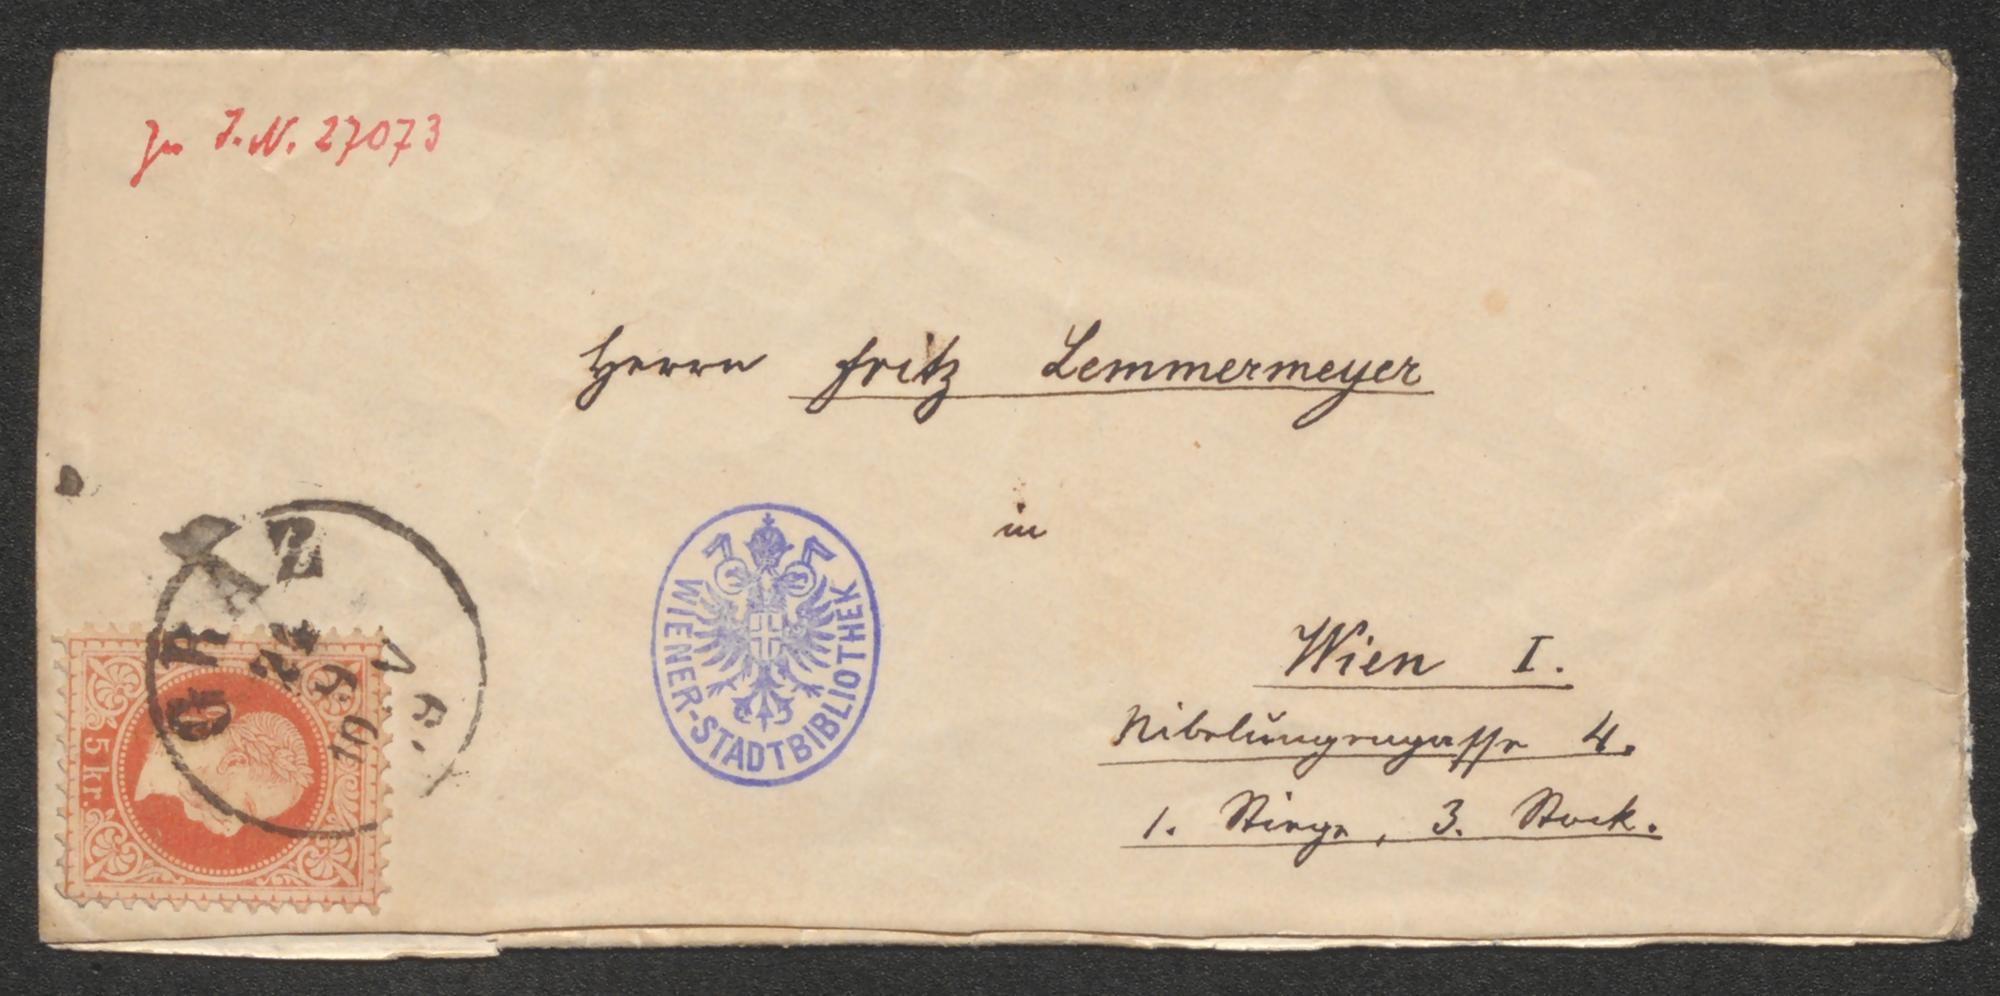 Zu I.N. 27073
Herrn Fritz Lemmermeyer
in
Wien I.
Nibelungengasse 4.
1. Stiege, 3. Stock.
WIENER-STADTBIBLIOTHEK
GRAZ
24
9
5 kr.